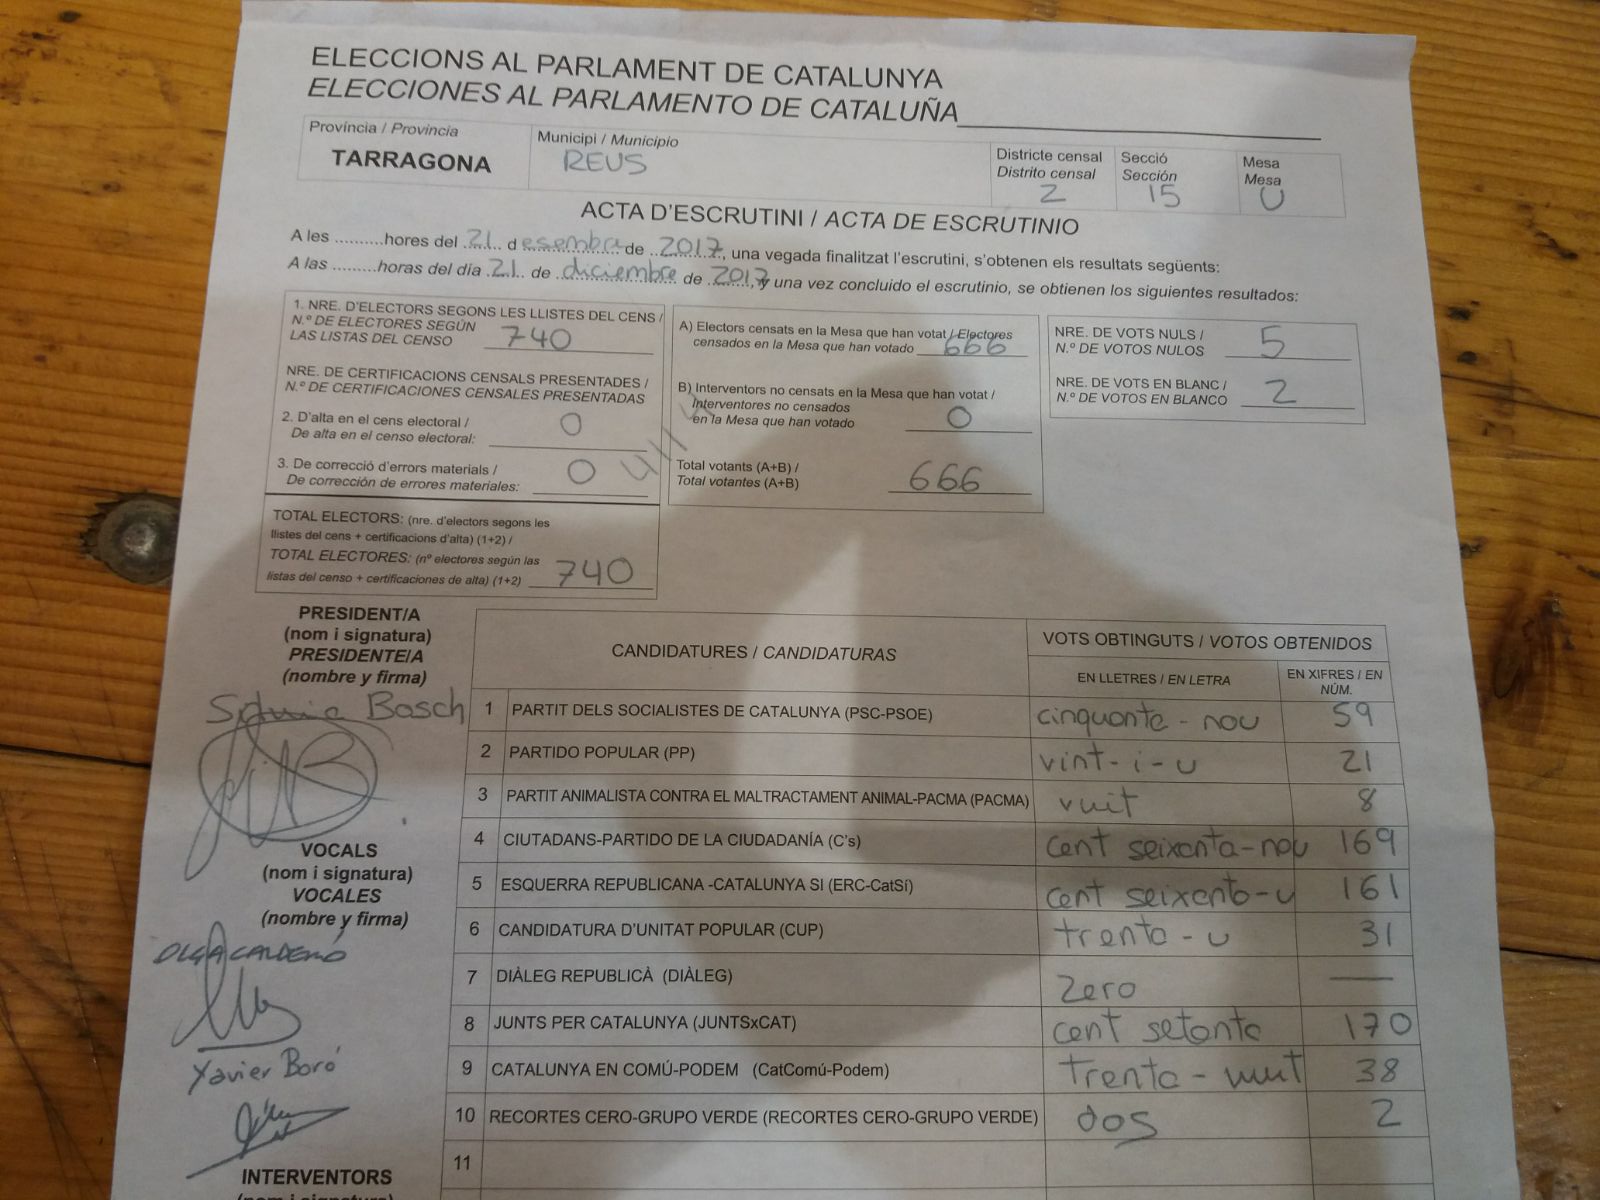 ELECCIONS AL PARLAMENT DE CATALUNYA
ELECCIONES AL PARLAMENTO DE CATALUÑA
Província / Provincia
TARRAGONA
Municipi / Municipio
REUS
Districte censal
Distrito censal
2
Secció
Sección
15
Mesa
Mesa
U
ACTA D'ESCRUTINI / ACTA DE ESCRUTINIO
A les ..........hores del 21 d esembre de 2017, una vegada finalitzat l'escrutini, s'obtenen els resultats següents:
A las .........horas del día 21 de diciembre de 2017, y una vez concluido el escrutinio, se obtienen los siguientes resultados:
1. NRE. D'ELECTORS SEGONS LES LLISTES DEL CENS /
N.º DE ELECTORES SEGÚN
LAS LISTAS DEL CENSO 740
NRE. DE CERTIFICACIONS CENSALS PRESENTADES /
N.º DE CERTIFICACIONES CENSALES PRESENTADAS
2. D'alta en el cens electoral /
De alta en el censo electoral: 0
3. De correcció d'errors materials /
De corrección de errores materiales: 0
TOTAL ELECTORS: (nre. d'electors segons les
llistes del cens + certificacions d'alta) (1+2) /
TOTAL ELECTORES: (nº electores según las
listas del censo + certificaciones de alta) (1+2) 740
A) Electors censats en la Mesa que han votat / Electores
censados en la Mesa que han votado 666
B) Interventors no censats en la Mesa que han votat /
Interventores no censados
en la Mesa que han votado 0
Total votants (A+B) /
Total votantes (A+B) 666
NRE. DE VOTS NULS /
N.º DE VOTOS NULOS 5
NRE. DE VOTS EN BLANC /
N.º DE VOTOS EN BLANCO 2
PRESIDENT/A
(nom i signatura)
PRESIDENTE/A
(nombre y firma)
Bosch
VOCALS
(nom i signatura)
VOCALES
(nombre y firma)
OLGA
Xavier Boró
INTERVENTORS
(nom i signatura)
CANDIDATURES / CANDIDATURAS
VOTS OBTINGUTS / VOTOS OBTENIDOS
EN LLETRES / EN LETRA
EN XIFRES / EN
NÚM.
1 PARTIT DELS SOCIALISTES DE CATALUNYA (PSC-PSOE) cinquanta - nou 59
2 PARTIDO POPULAR (PP) vint-i-u 21
3 PARTIT ANIMALISTA CONTRA EL MALTRACTAMENT ANIMAL-PACMA (PACMA) vuit 8
4 CIUTADANS-PARTIDO DE LA CIUDADANÍA (C's) cent seixanta-nou 169
5 ESQUERRA REPUBLICANA -CATALUNYA SI (ERC-CatSí) cent seixanta-u 161
6 CANDIDATURA D'UNITAT POPULAR (CUP) trenta - u 31
7 DIÀLEG REPUBLICÀ (DIÀLEG) zero —
8 JUNTS PER CATALUNYA (JUNTSxCAT) cent setanta 170
9 CATALUNYA EN COMÚ-PODEM (CatComú-Podem) trenta - vuit 38
10 RECORTES CERO-GRUPO VERDE (RECORTES CERO-GRUPO VERDE) dos 2
11